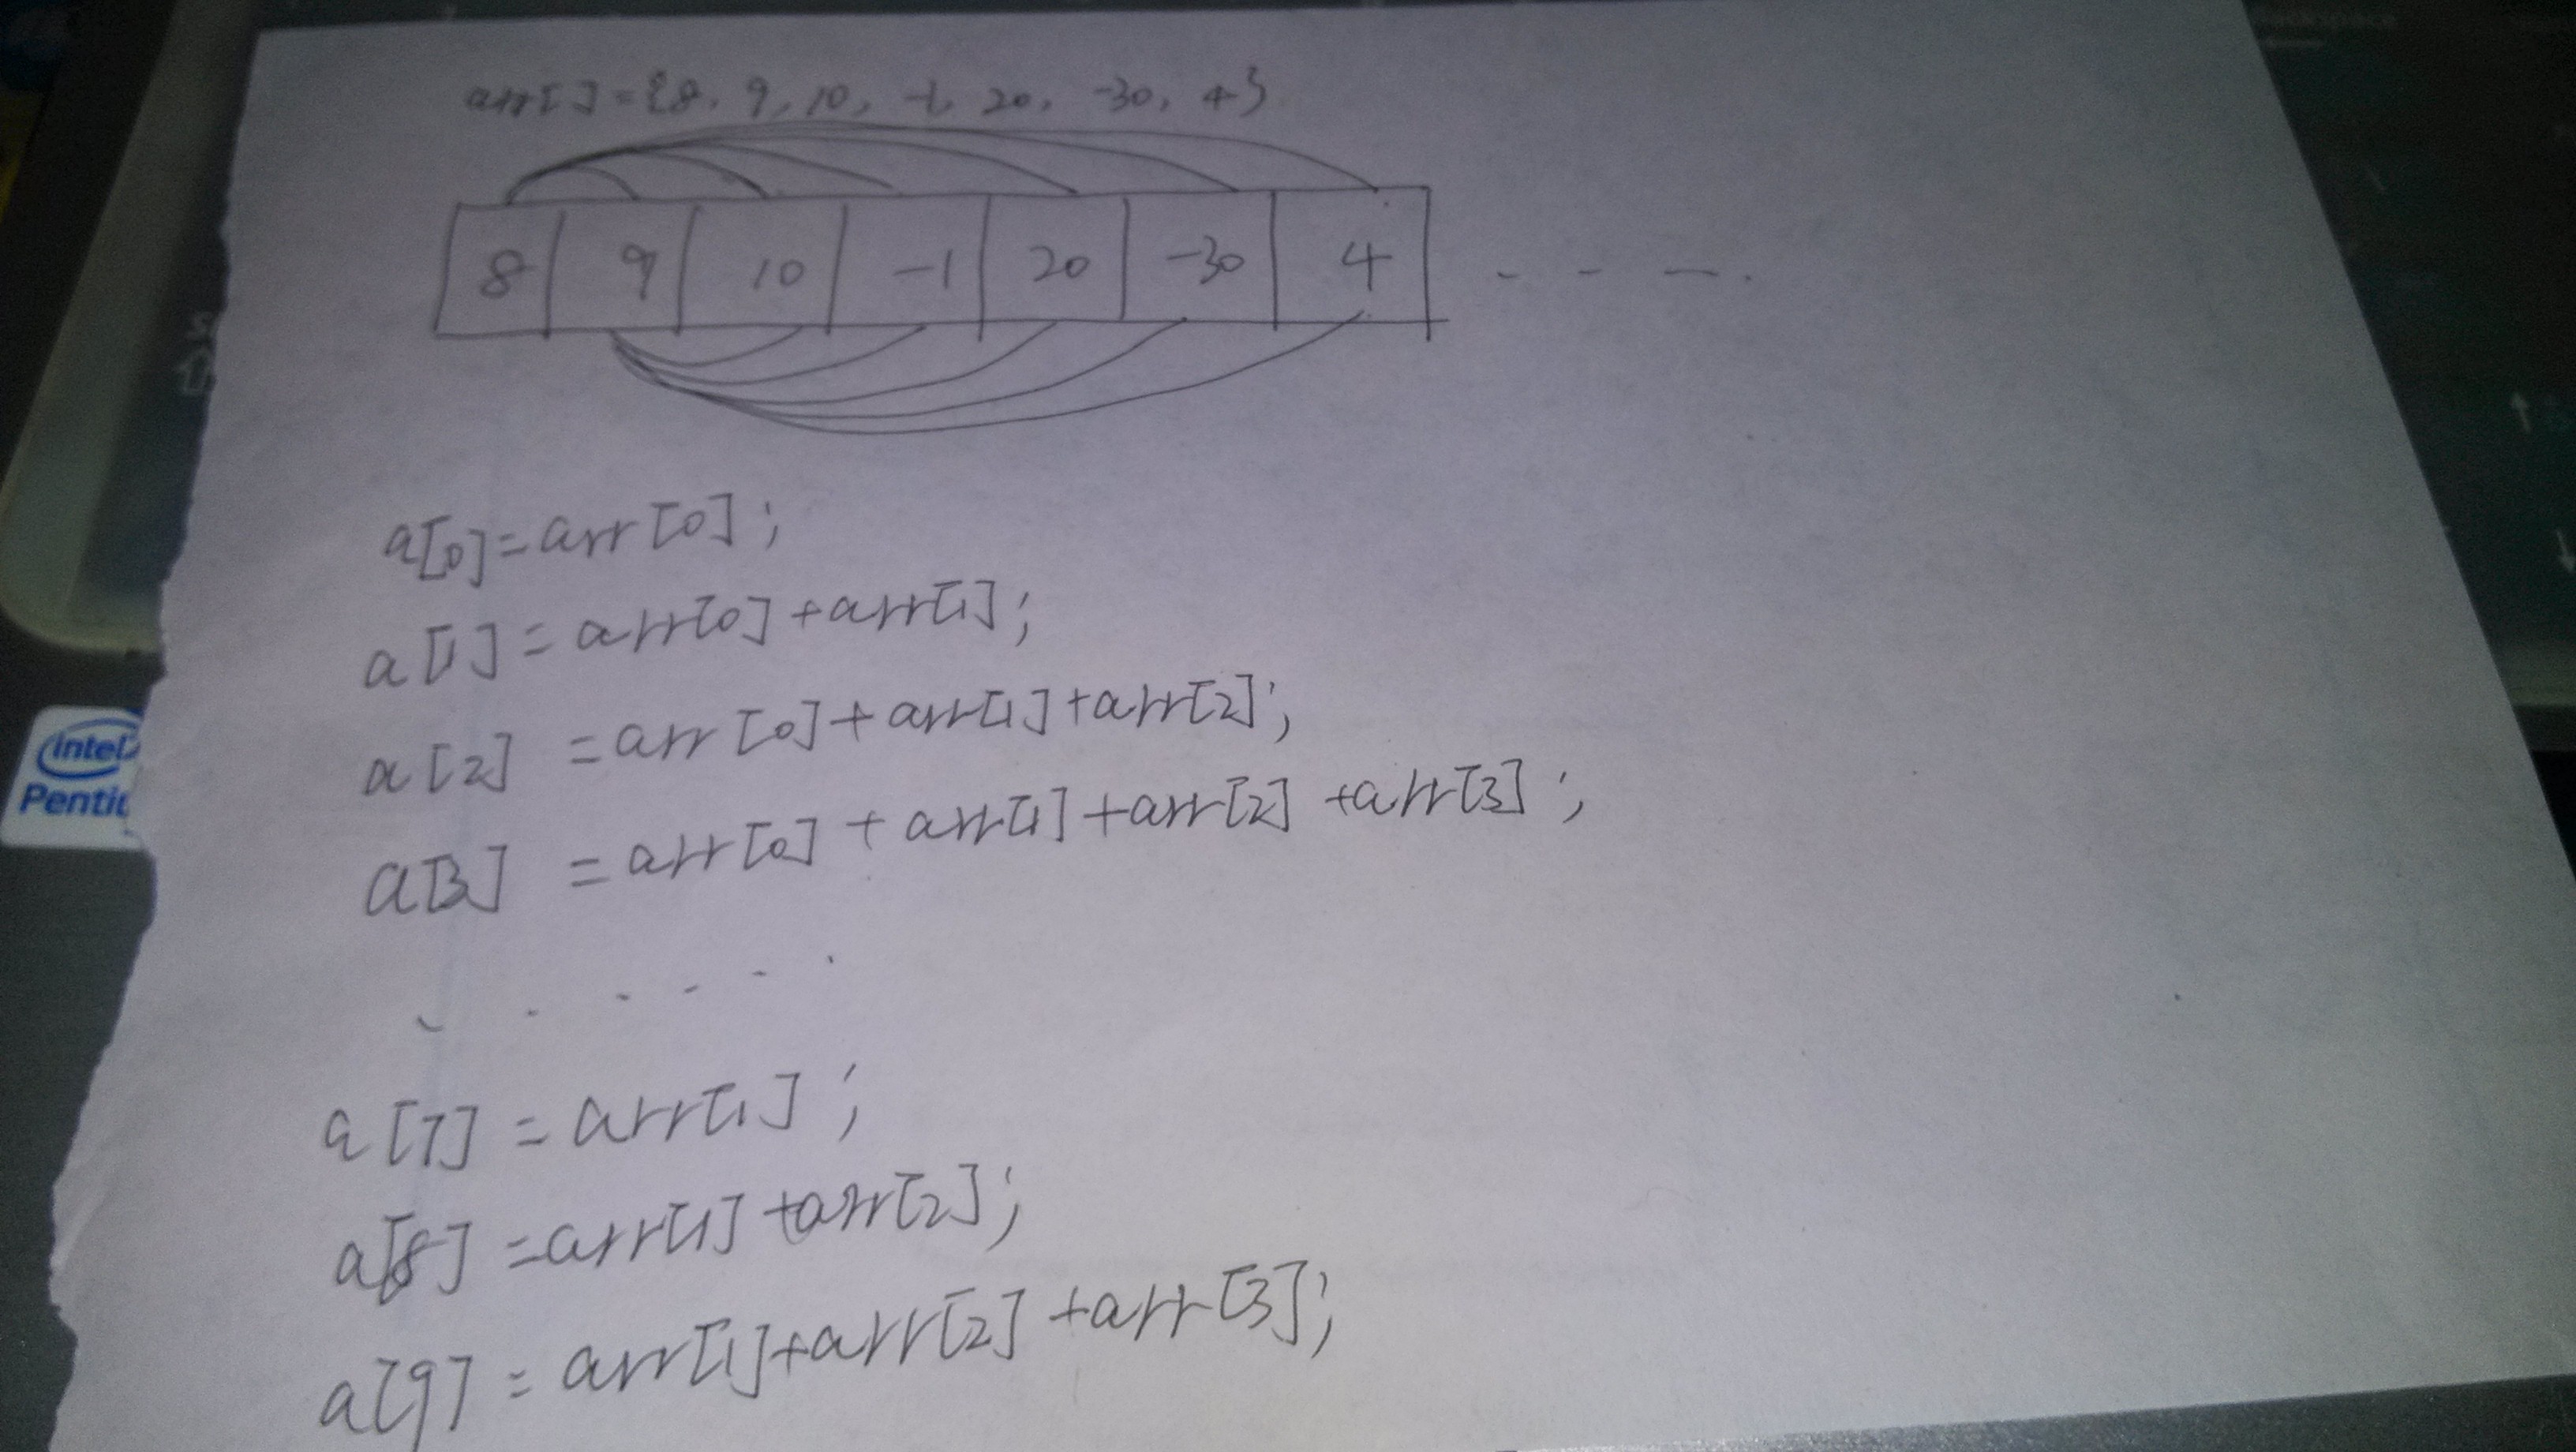 arr[ ] = {8, 9, 10, -1, 20, -30, 4}
8 9 10 -1 20 -30 4 - - - .
a[0]=arr[0];
a[1]=arr[0]+arr[1];
a[2] =arr[0]+arr[1]+arr[2];
a[3] =arr[0]+arr[1]+arr[2]+arr[3];
a[7]=arr[1];
a[8]=arr[1]+arr[2];
a[9]=arr[1]+arr[2]+arr[3];
intel